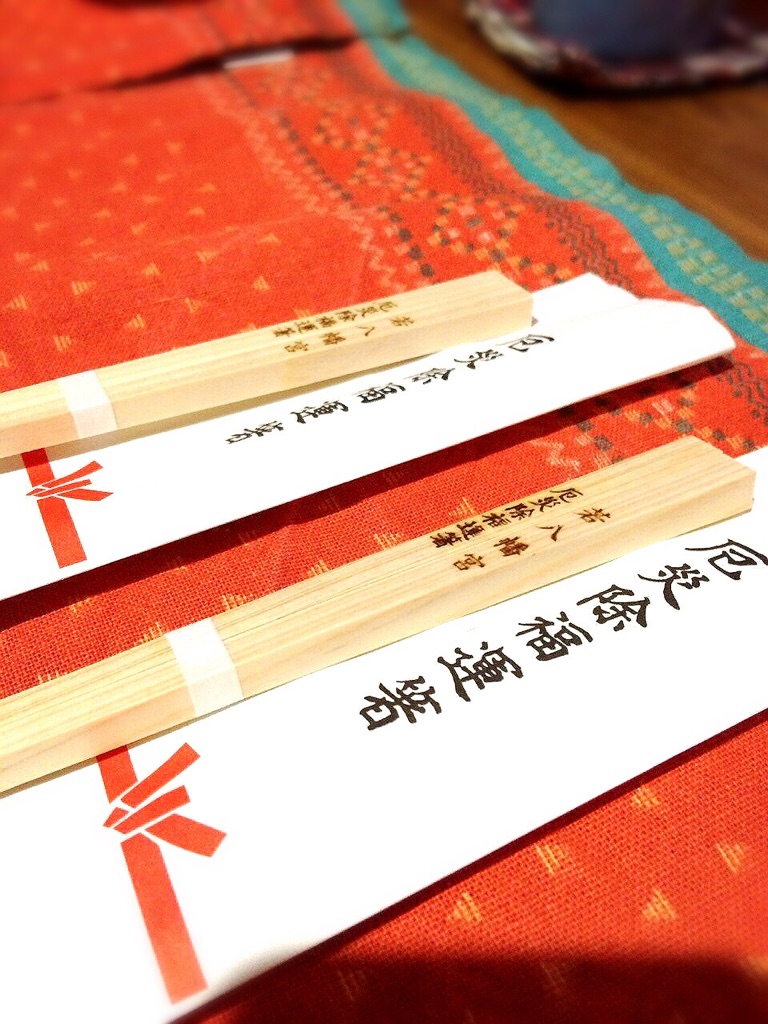 若八幡宮
厄災除福運箸
厄災除福運箸
若八幡宮
厄災除福運箸
厄災除福運箸